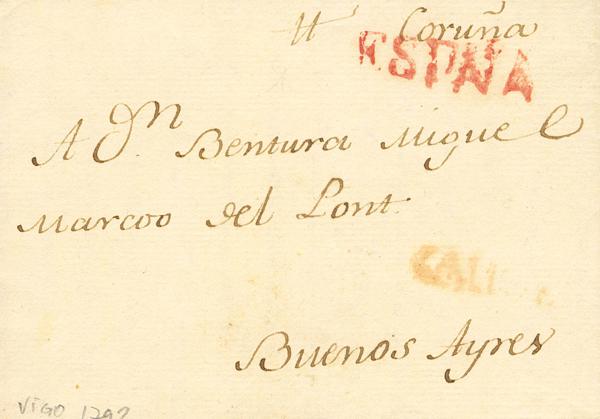 Coruña
ESPAÑA
A Dn Bentura Miguel
Marcoo del Pont
Buenos Ayres
VIGO 1792